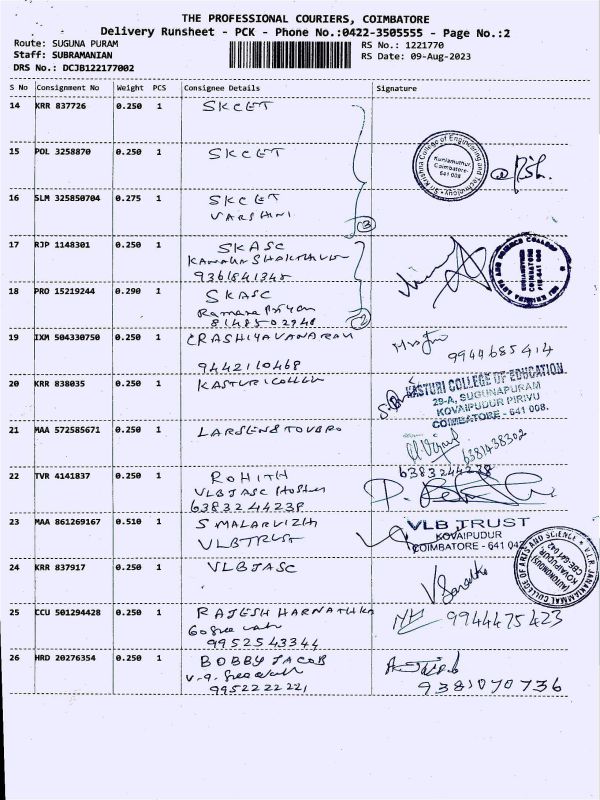 THE PROFESSIONAL COURIERS, COIMBATORE
Delivery Runsheet - PCK - Phone No.:0422-3505555 - Page No.:2
Route: SUGUNA PURAM
RS No.: 1221770
Staff: SUBRAMANIAN
RS Date: 09-Aug-2023
DRS No.: DCJB122177002
S No Consignment No Weight PCS Consignee Details Signature
14 KRR 837726 0.250 1 SKCET
15 POL 3258870 0.250 1 SKCET
Sri Krishna College of Engineering and Technology
Kuniamuthur, Coimbatore- 641 008
16 SLM 325850704 0.275 1 SKCET
VARSHINI
3
17 RJP 1148301 0.250 1 SKASC
9361841348
18 PRO 15219244 0.290 1 SKASC
8148502948
2
19 IXM 504330750 0.250 1
9442110468
9944685414
20 KRR 838035 0.250 1
KASTURI COLLEGE OF EDUCATION
29-A, SUGUNAPURAM
KOVAIPUDUR PIRIVU
COIMBATORE - 641 008.
21 MAA 572585671 0.250 1 LARSEN & TOUBRO
6381438302
22 TVR 4141837 0.250 1 ROHITH
VLBJASC Hostel
6383244238
6383244238
23 MAA 861269167 0.510 1 S MALARVIZH
VLBTRUST
VLB TRUST
KOVAIPUDUR
COIMBATORE - 641 042
24 KRR 837917 0.250 1 VLBJASC
V.L.B. JANAKIAMMAL COLLEGE OF ARTS AND SCIENCE
(AUTONOMOUS)
KOVAIPUDUR
CBE-641 042
25 CCU 501294428 0.250 1 RAJESH HARNATHKA
9952543344
9944475423
26 HRD 20276354 0.250 1 BOBBY JACOB
9952222221
9381070736